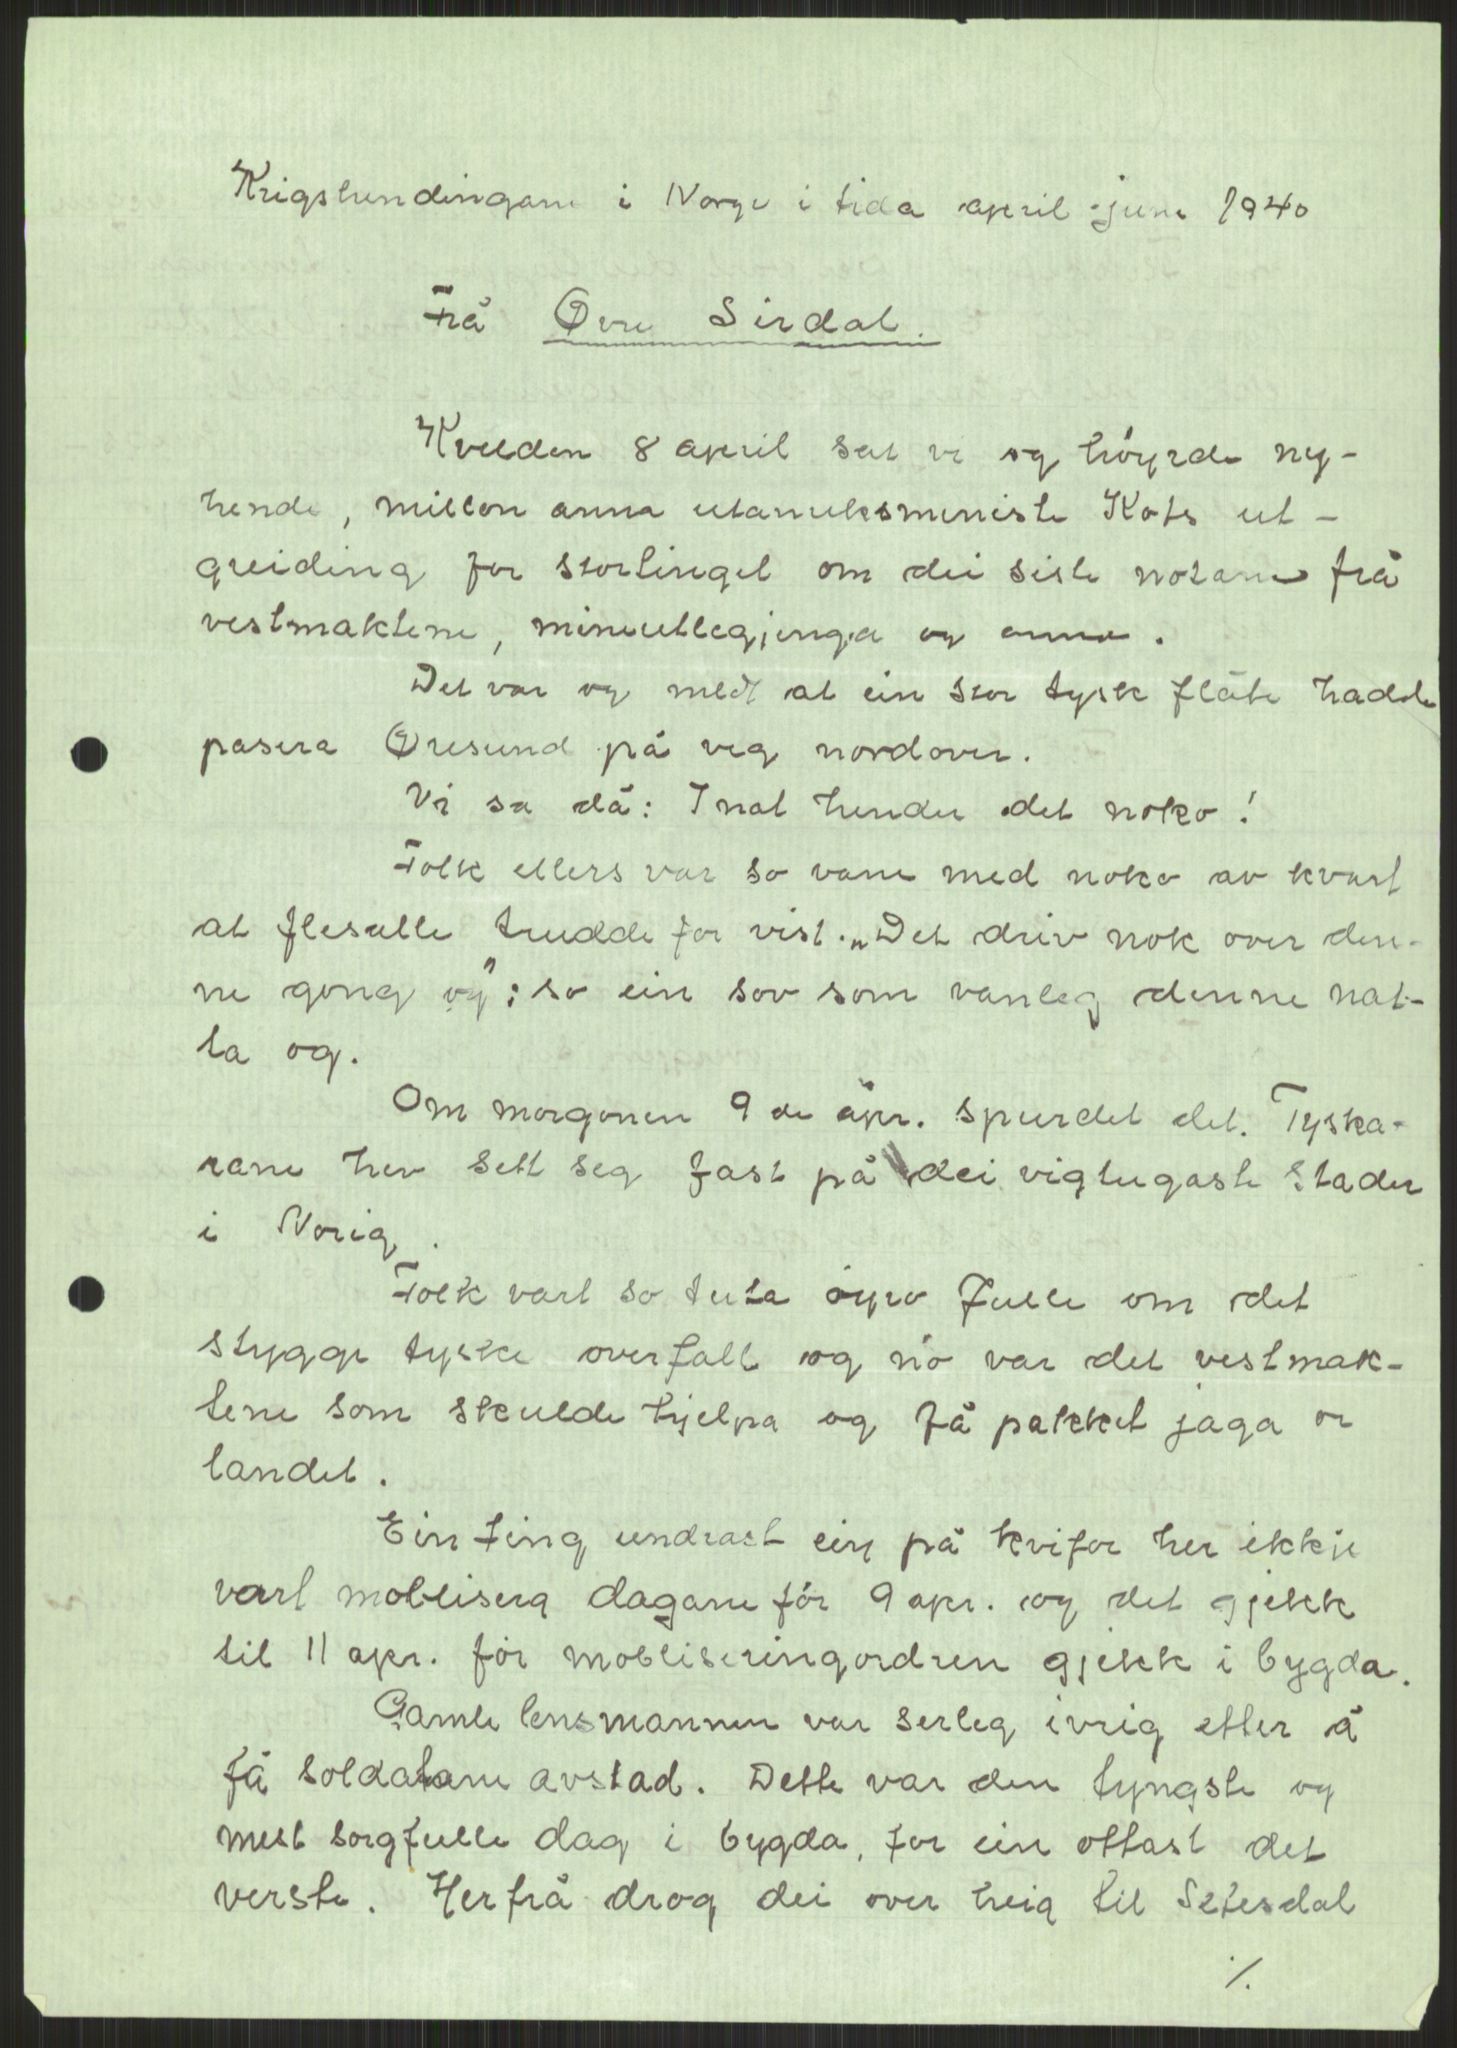 Krigshendingane i Norge i tida april-juni 1940
Frå Øvre Sirdal.
Kvelden 8 april sat vi og höyrde ny-
hende, millon anna utanriksministe Kots ut-
greiding for stortinget om dei siste notane frå
vestmaktene, mineutlegjinga og anna.
Det var og meldt at ein stor tysk flåte hadde
pasera Øresund på veg nordover.
Vi sa då: I nat hender det noko!
Folk ellers var so vane med noko av kvart
at flesalle trudde for vist. „Det driv nok over den-
ne gong og"; so ein sov som vanleg denne nat-
ta og.
Om morgonen 9 de apr. spurdet det. Tyska-
rane hev sett seg fast på dei vigtugaste stader
i Norig.
Folk vart so tuta öyro fulle om det
stygge tyske overfall og no var det vestmak-
tene som skulde hjelpa og få pakket jaga or
landet.
Ein ting undrast ein på kvifor her ikkje
vart mobilisera dagane för 9 apr. og det gjekk
til 11 apr. för mobliseringordren gjekk i bygda.
Gamle lensmannen var serleg ivrig etter å
få soldatane avstad. Dette var den tyngste og
mest sorgfulle dag i bygda, for ein ottast det
verste. Herfrå drog dei over heig til Setesdal
./.